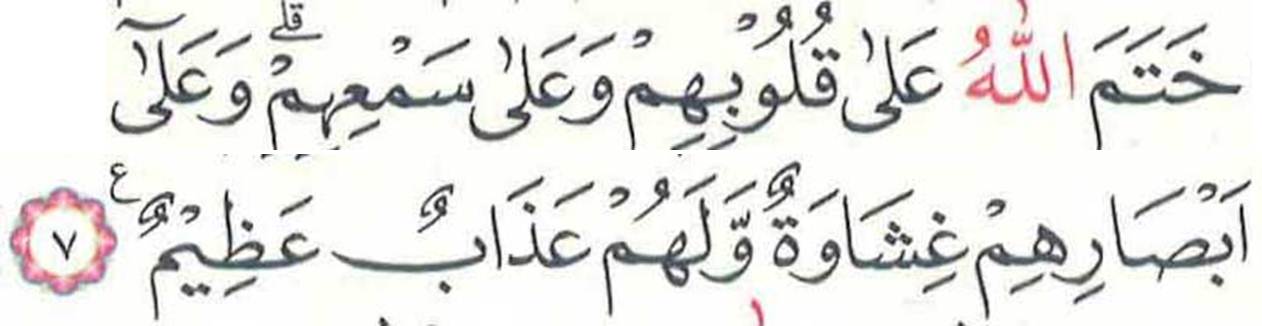 خَتَمَ اللّٰهُ عَلٰى قُلُوْبِهِمْ وَعَلٰى سَمْعِهِمْ ۗ وَعَلٰٓى
اَبْصَارِهِمْ غِشَاوَةٌ وَّلَهُمْ عَذَابٌ عَظِيْمٌ ع ٧